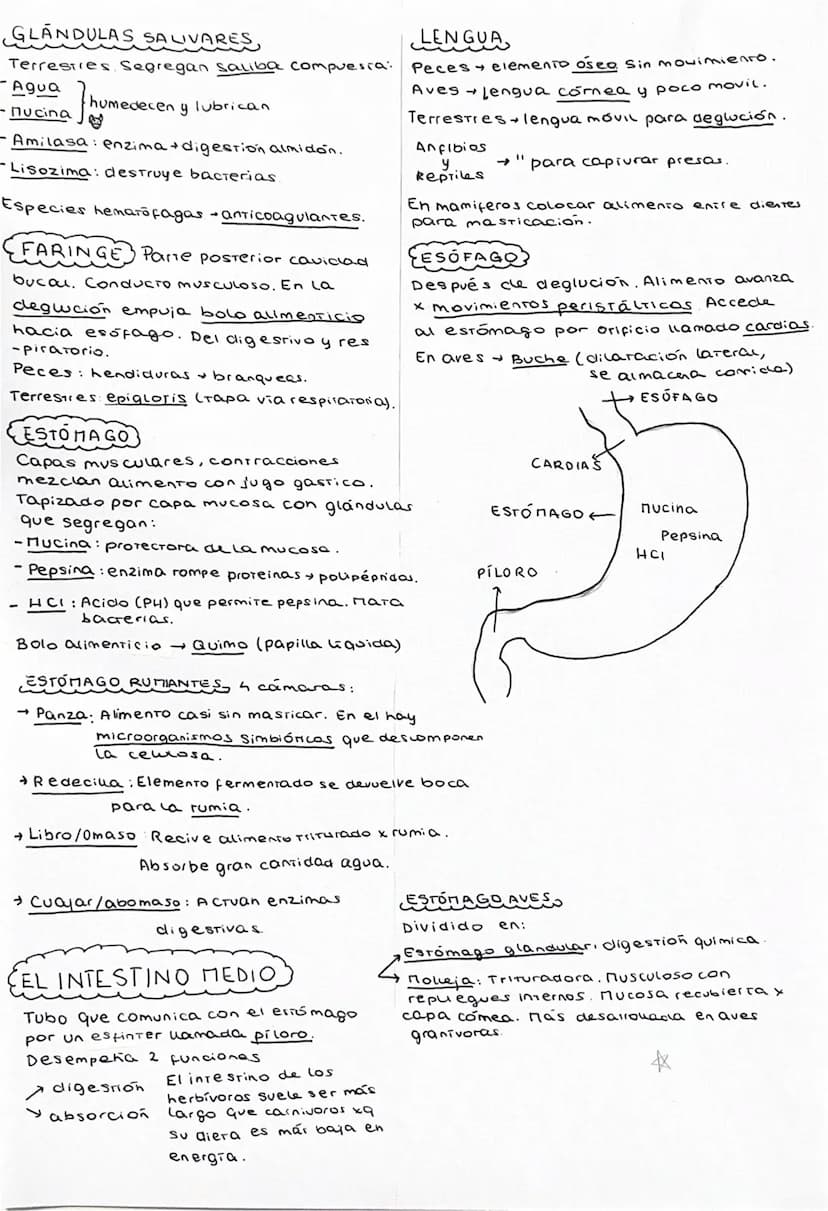 GLÁNDULAS SALIVARES
Terrestres. Segregan saliba compuesta:
- Agua
- Mucina
humedecen y lubrican
- Amilasa: enzima → digestión almidón.
- Lisozima: destruye bacterias
Especies hematófagas → anticoagulantes.
FARINGE Parte posterior cavidad
bucal. Conducto musculoso. En la
deglución empuja bolo alimenticio
hacia esófago. Del digestivo y res
-piratorio.
Peces: hendiduras → branqueas.
Terrestres: epiglotis (tapa vía respiratoria).
ESTÓMAGO
Capas musculares, contracciones
mezclan alimento con jugo gastico.
Tapizado por capa mucosa con glándulas
que segregan:
- Mucina: protectora de la mucosa.
- Pepsina: enzima rompe proteinas → polipéptidos.
- HCl: Acido (PH) que permite pepsina. Mata
bacterias.
Bolo alimenticio → Quimo (papilla líquida)
ESTÓMAGO RUMIANTES, 4 cámaras:
→ Panza: Alimento casi sin masticar. En el hay
microorganismos simbióticos que descomponen
la celulosa.
→ Redecilla: Elemento fermentado se devuelve boca
para la rumia.
→ Libro/Omaso: Recive alimento triturado x rumia.
Absorbe gran cantidad agua.
→ Cuajar/abomaso: Actuan enzimas
digestivas.
EL INTESTINO MEDIO
Tubo que comunica con el estómago
por un esfinter llamada píloro.
Desempeña 2 funciones
↗ digestión
↘ absorción
El intestino de los
herbívoros suele ser más
largo que carnivoros xq
su dieta es más baja en
energía.
LENGUA
Peces → elemento óseo sin movimiento.
Aves → Lengua córnea y poco movil.
Terrestres → lengua móvil para deglución.
Anfibios
y
Reptiles
→ " para capturar presas.
En mamiferos colocar alimento entre dientes
para masticación.
ESÓFAGO
Después de deglución. Alimento avanza
x movimientos peristálticos. Accede
al estómago por orificio llamado cardias.
En aves → Buche (dilatación lateral,
se almacena comida)
→ ESÓFAGO
CARDIAS
ESTÓMAGO ←
Mucina
Pepsina
HCl
PÍLORO
ESTÓMAGO AVES
Dividido en:
Estómago glandular: digestión química.
Molleja: Trituradora. Musculoso con
repliegues internos. Mucosa recubierta x
capa córnea. Más desarrollada en aves
granívoras.